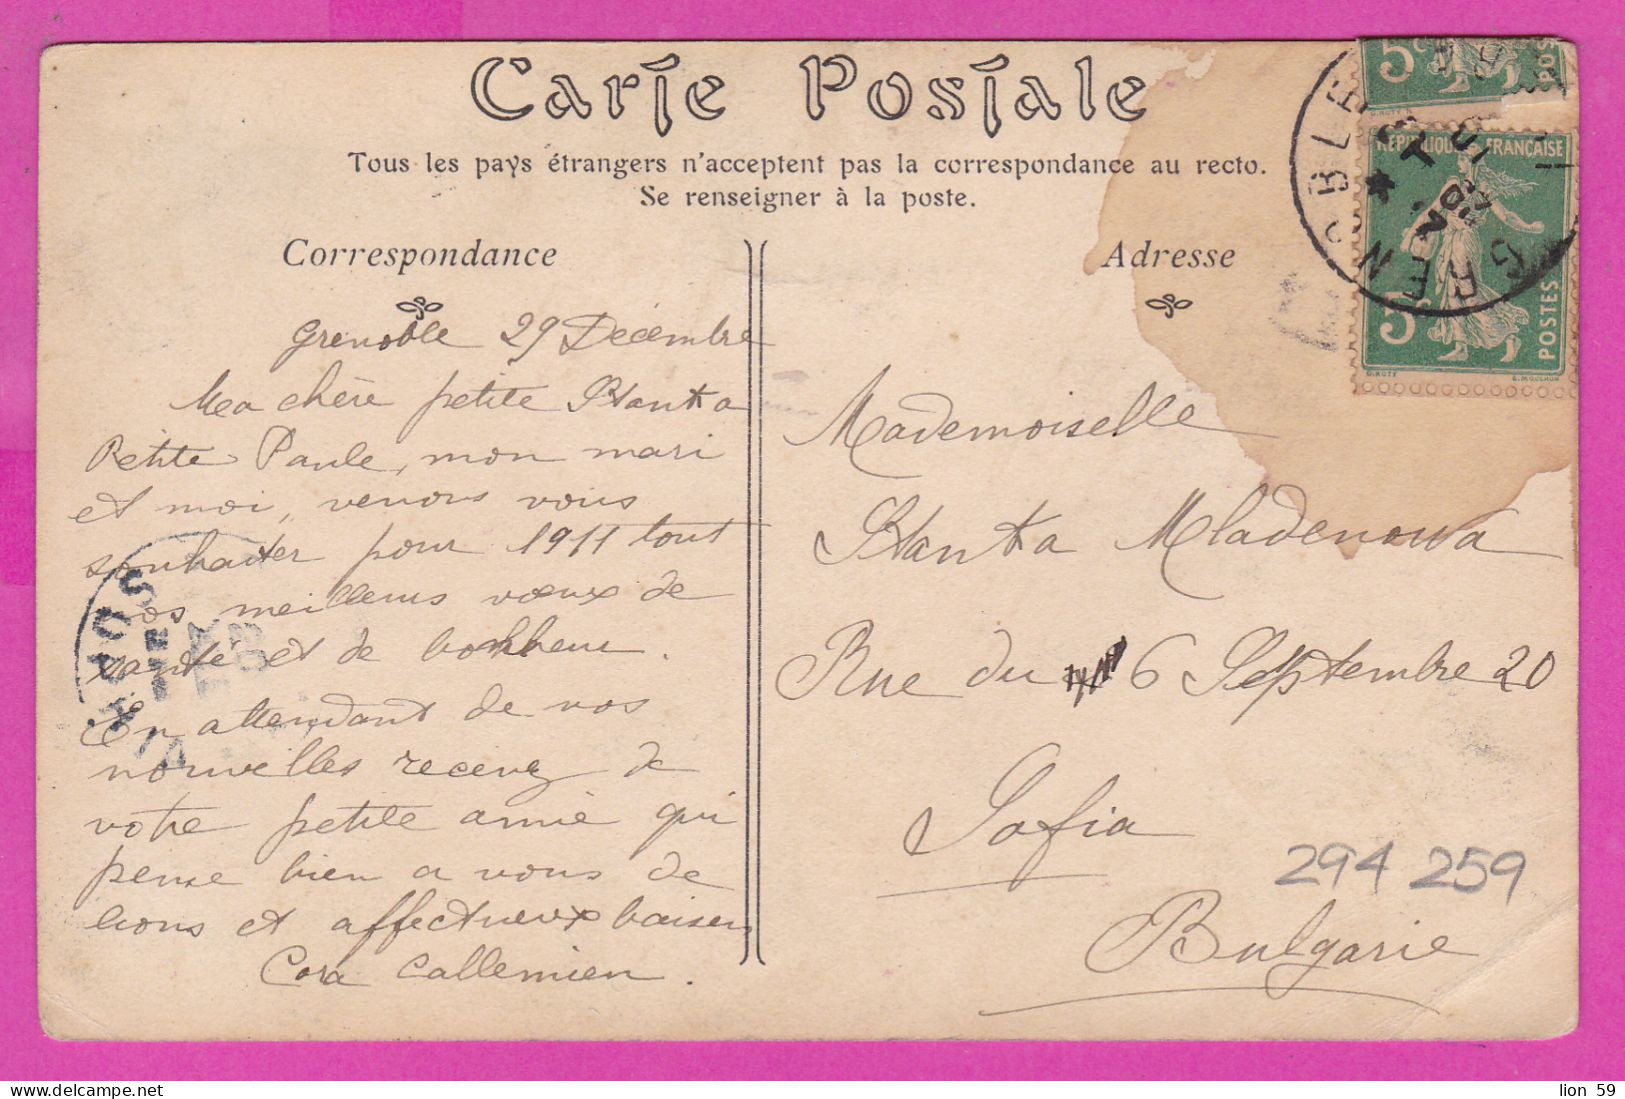 Carte Postale
Tous les pays étrangers n'acceptent pas la correspondance au recto.
Se renseigner à la poste.
Correspondance
Grenoble 29 Décembre
Ma chère petite Stanka
Petite Paule, mon mari
et moi, venons vous
souhaiter pour 1911 tout
nos meilleurs vœux de
santé et de bonheur.
En attendant de vos
nouvelles recevez de
votre petite amie qui
pense bien a vous de
bons et affectueux baisers
Cora Callemien.
Adresse
Mademoiselle
Stanka Mladenowa
Rue du 6 Septembre 20
Sofia
Bulgarie
294 259
5c
POS
RÉPUBLIQUE FRANÇAISE
5c
POSTES
GRENOBLE
lion 59